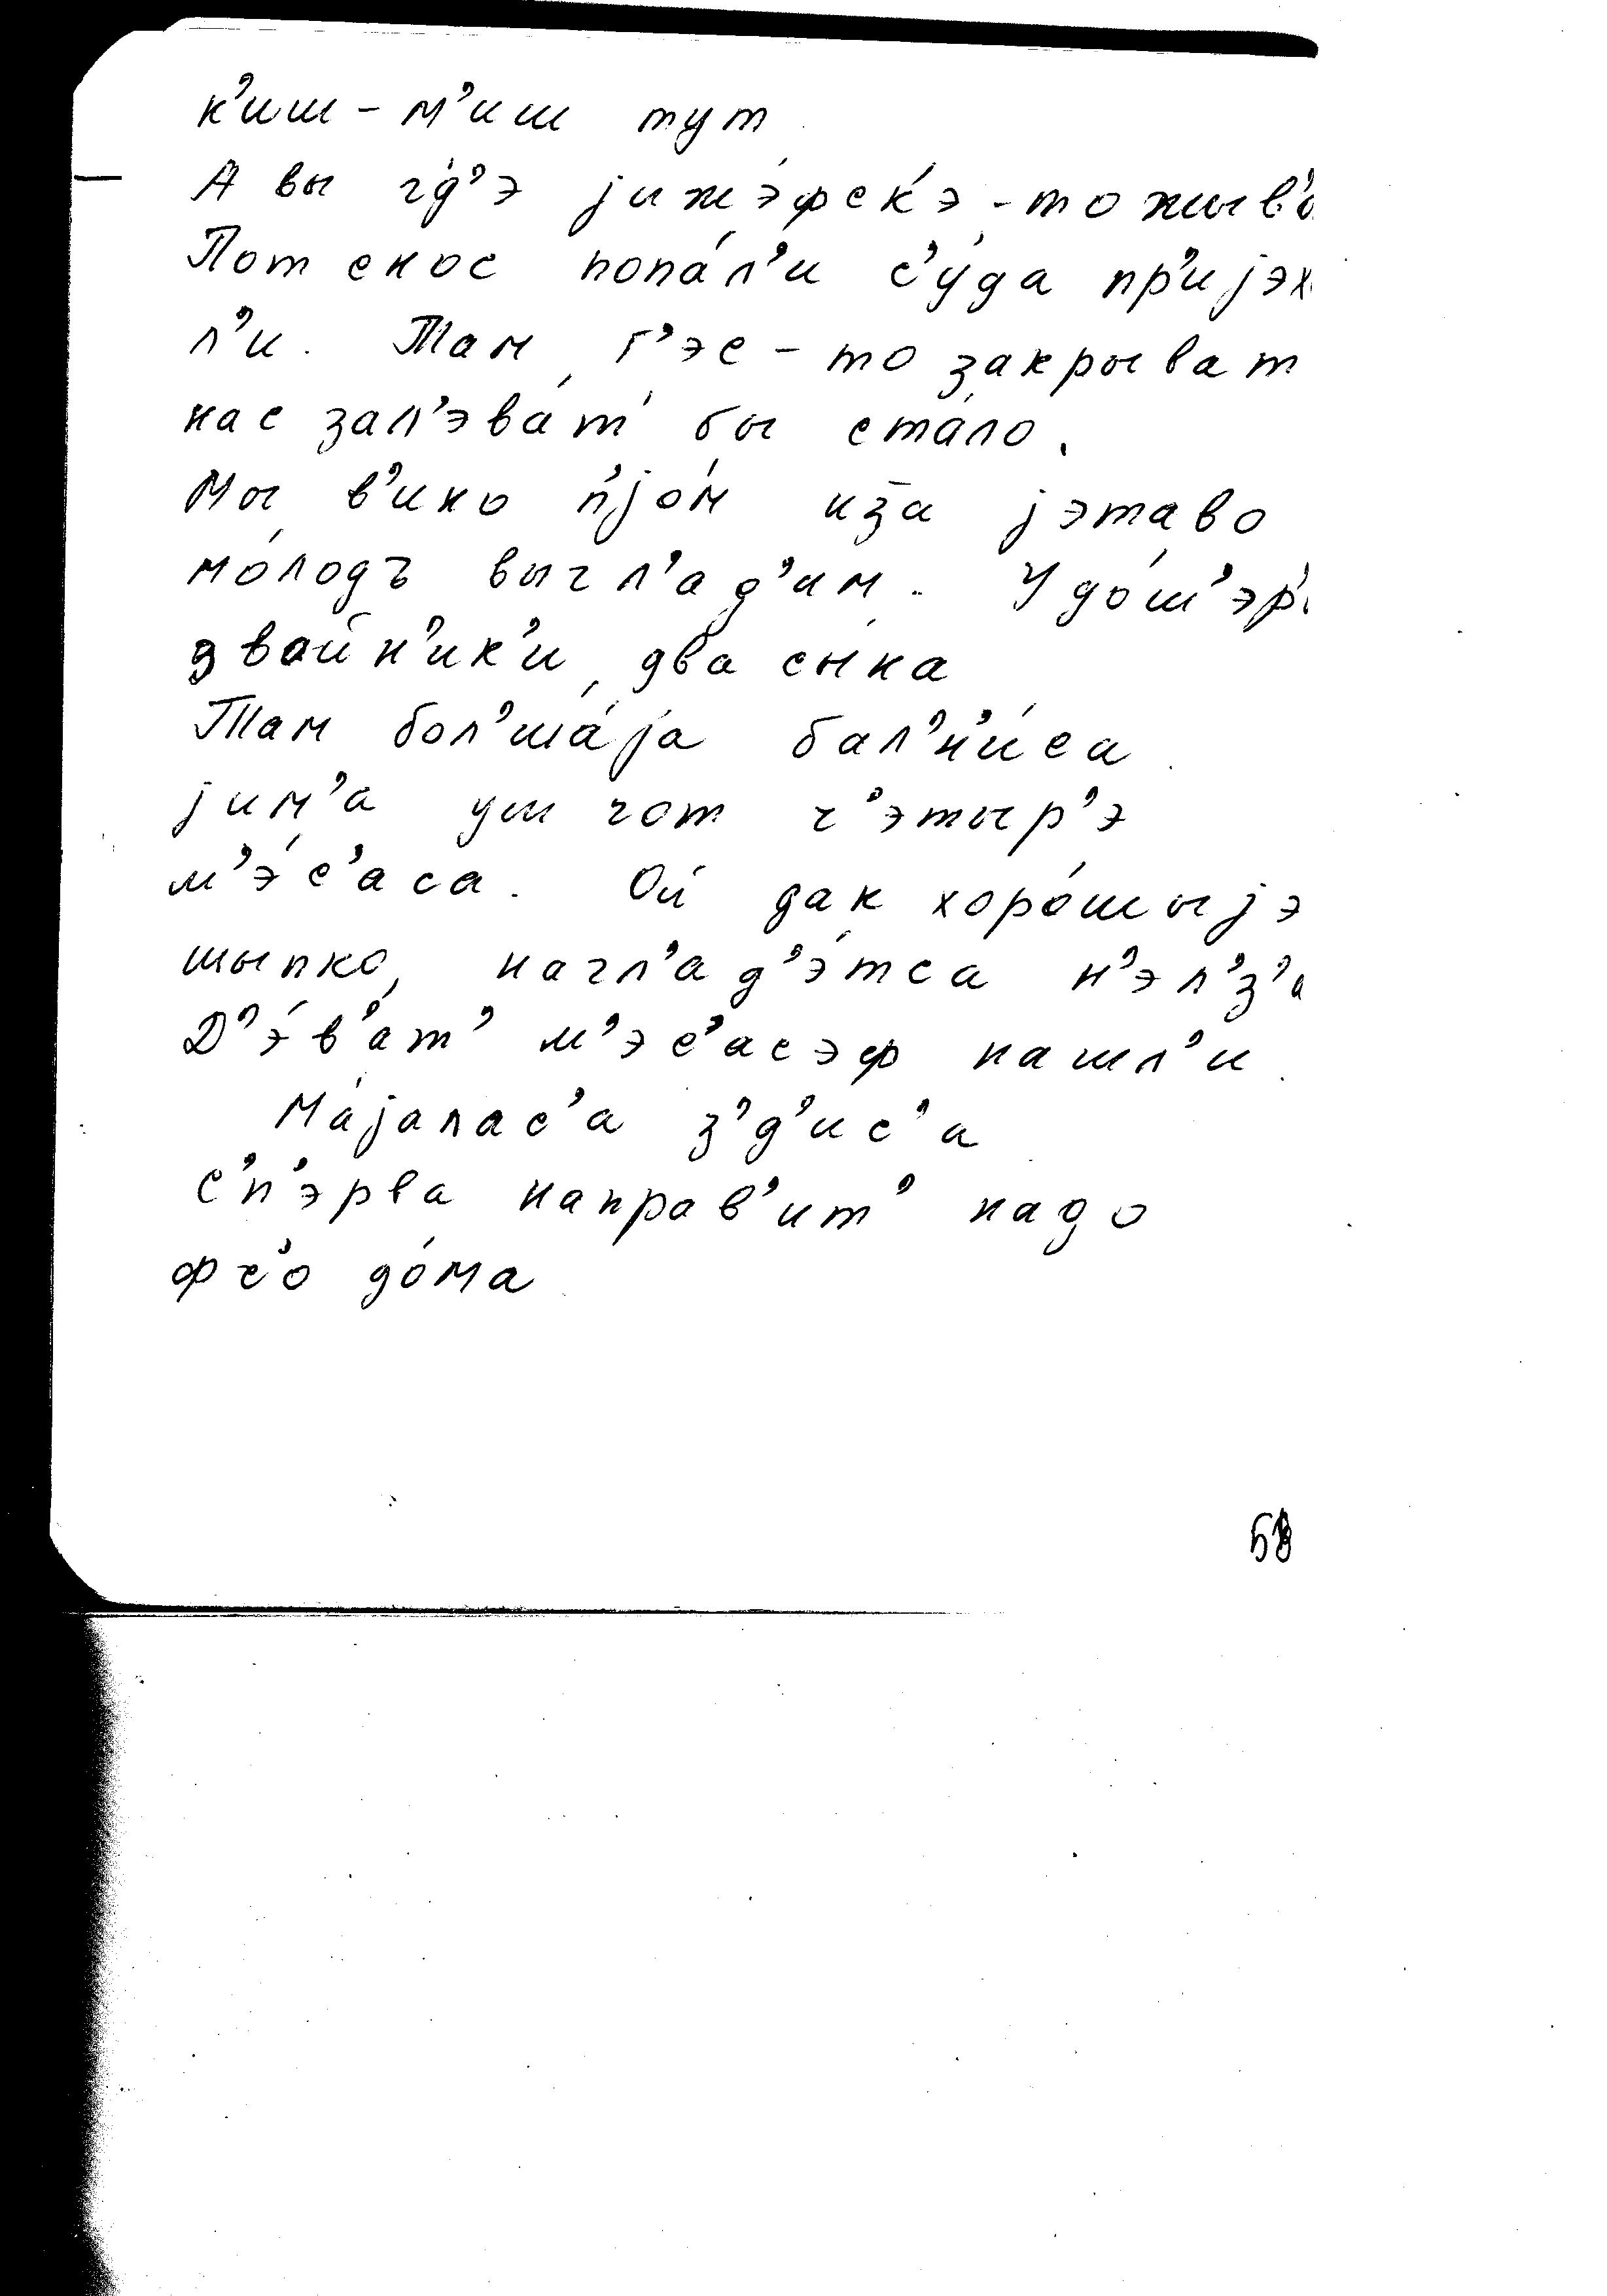 к’иш - м’иш тут
А вы гд’э јижэ́фск’э - то жыв’о
Пот снос попа́л’и с’у́да пр’ијэх
л’и. Там, г’эс - то закрыват
нас зал’эва́т’ бы ста́ло.
Мы в’ино п’јо́м иза јэтаво
мо́лодъ выгл’ад’им. У до́ш’эр’и
двайн’ик’и, два сы́на
Там бол’ша́ја бал’н’и́са
јим’а уш гот ч’этыр’э
м’э́с’аса. Ой дак хоро́шыјэ
шыпко, нагл’ад’э́тса н’эл’з’а
Д’э́в’ат’ м’эс’асэф нашл’и.
Ма́јалас’а з’д’ис’а
С’п’эрва направ’ит’ надо
фс’о до́ма
58